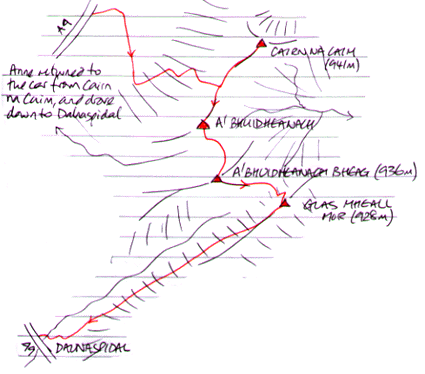 A9
CAIRN NA CAIM
(941m)
Anne returned to
the car from Cairn
na Caim, and drove
down to Dalnaspidal
A' BHUIDHEANACH
A'BHUIDHEANACH BHEAG (936m)
GLAS MHEALL
MOR (928m)
A9
DALNASPIDAL